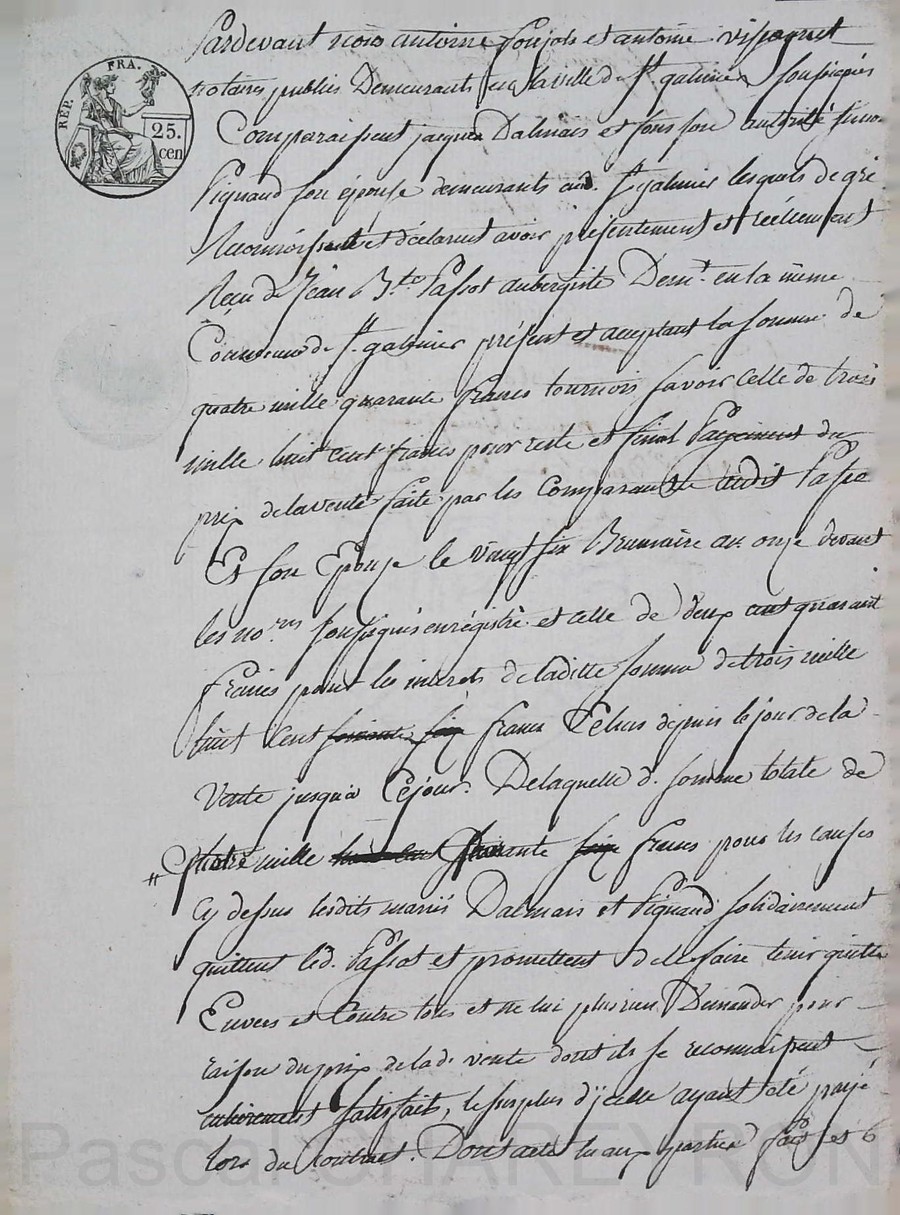 REP. FRA.
25.
cen
Pardevant nous antoine et antoine
notaires publics Demeurants en la ville de St galmier soussignés
Comparaissent jacques Dalmais et sous son autorité
Pignaud son épouse demeurants au. St galmier lesquels de gré
Reconnoissent et déclarent avoir présentement et réellement
Reçu de Jean Bte Passot aubergiste Demt. en la même
Commune de St. galmier présent et acceptant la somme de
quatre mille quarante francs tournois savoir Celle de trois
mille huit cent francs pour reste et final Payement du
prix de la vente faite par les Comparants audit Passe
Et son Epouse le vingt six Brumaire an onze devant
les no.res soussignés enrégistré et celle de deux cent quarante
francs pour les interets de laditte somme de trois mille
huit Cent francs Echus depuis le jour de la
Vente jusqu'à Cejour. De laquelle d. somme totale de
" Quatre mille quarante francs pour les causes
Cy dessus lesdits mariés Dalmais et Pignaud solidairement
quittent led. Passot et promettent de le faire tenir quitte
Envers et Contre tous et ne lui plus rien Demander pour
raison du prix de lad. vente dont ils se reconnaissent
entierement satisfait, le surplus d'jcelle ayant été payé
lors du Contrat. Dont acte lu aux parties fait et
Pascal CHAREYRON